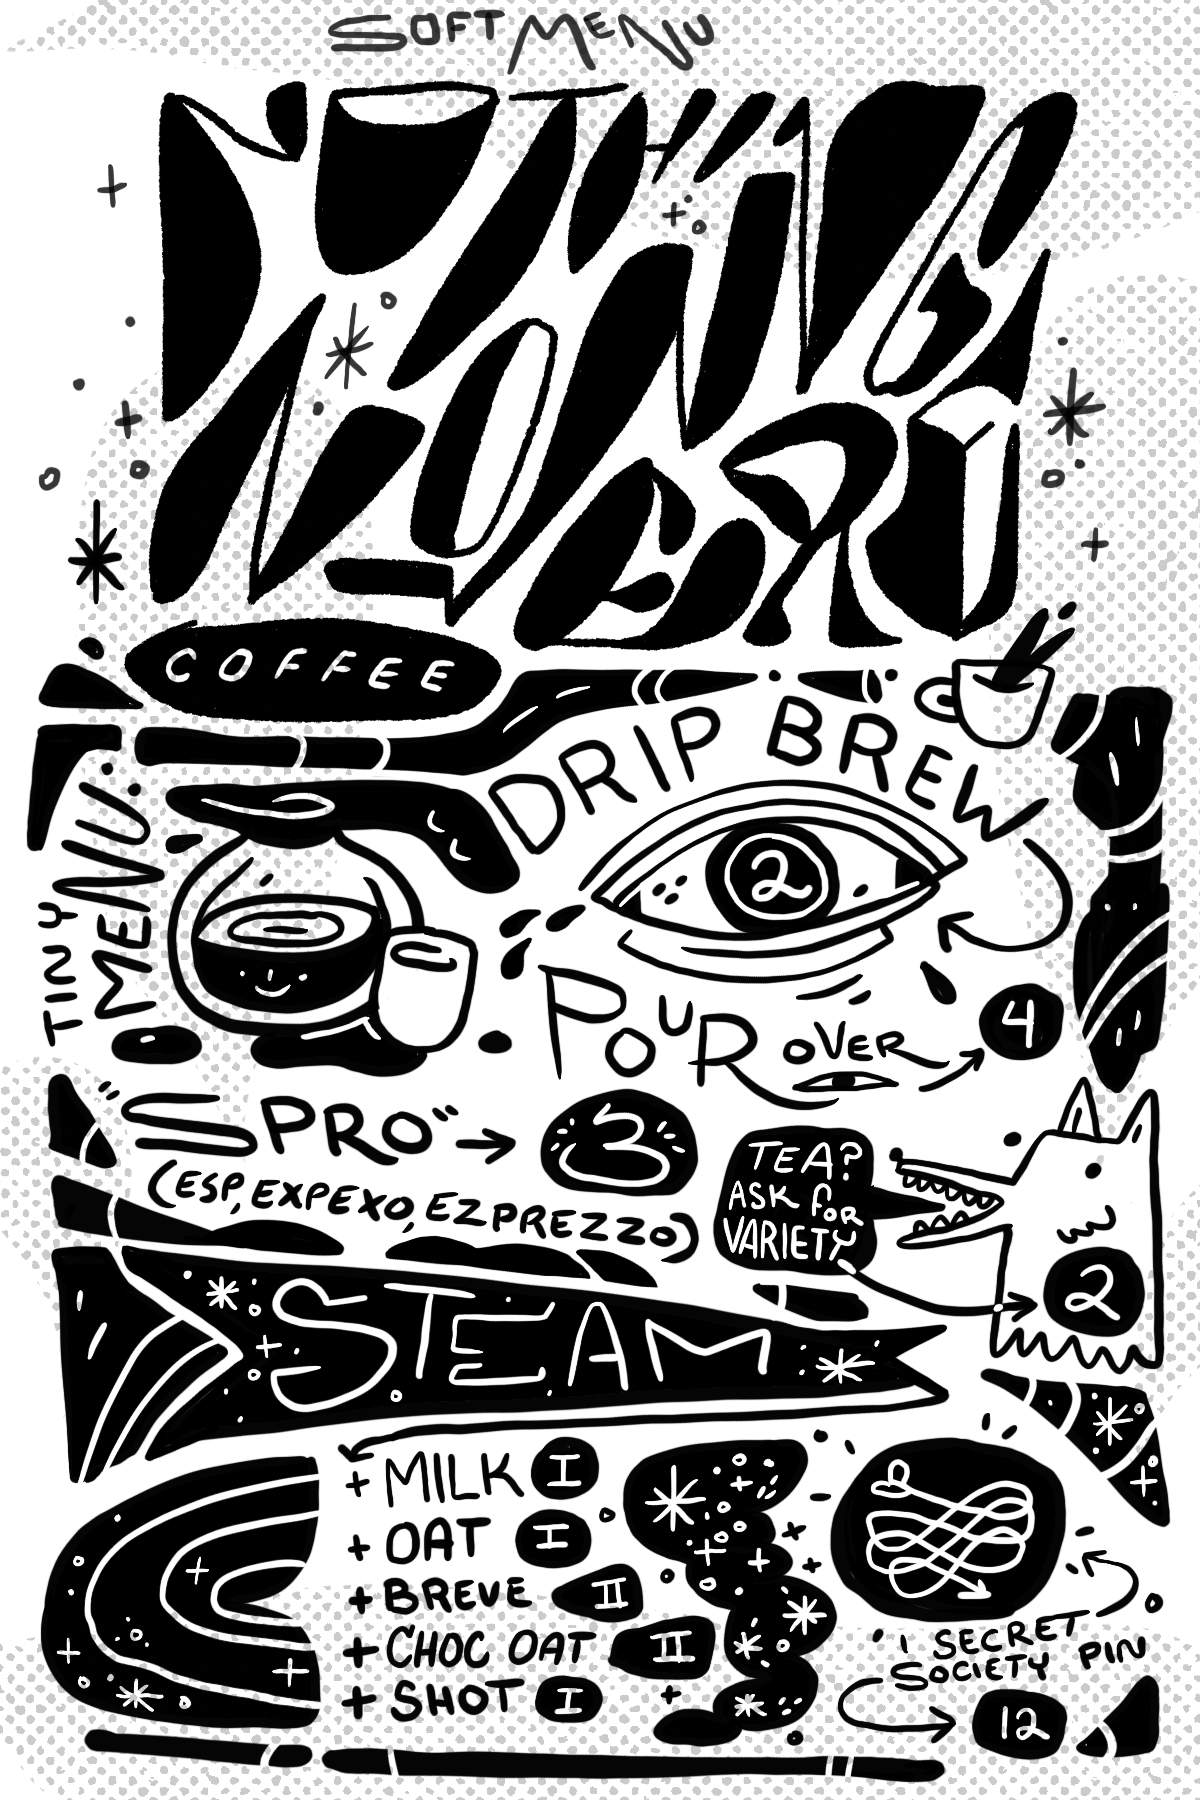 SOFT MENU
NOTHING
COFFEE
TINY
MENU.
DRIP BREW
2
POUR OVER
4
"SPRO" → 3
(ESP, EXPEXO, EZPREZZO)
TEA?
ASK FOR
VARIETY
2
STEAM
+ MILK I
+ OAT I
+ BREVE II
+ CHOC OAT II
+ SHOT I
1 SECRET
SOCIETY PIN
12